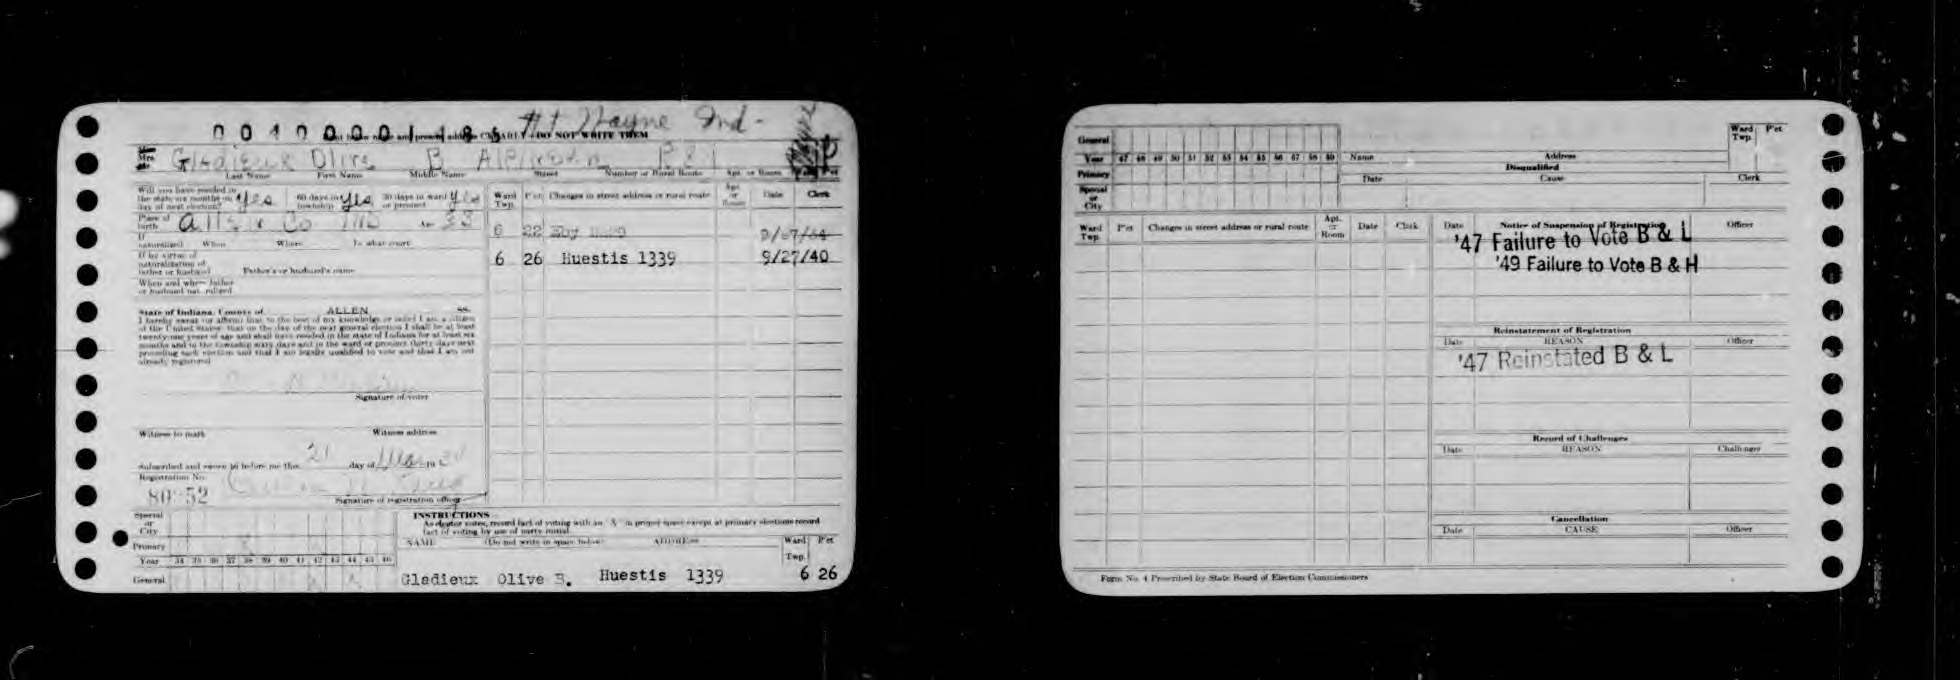 Ft Wayne Ind -
DO NOT WRITE THEM
Mrs Gladieux Olive B R R 1
Last Name First Name Middle Name Street Number or Rural Route Apt. or Room
Will you have resided in the state six months on day of next election? Yes 60 days in township Yes 30 days in ward or precinct Yes
Place of birth Allen Co
If naturalized When Where To what court
If by virtue of naturalization of father or husband Father's or husband's name
When and where father or husband naturalized
State of Indiana, County of ALLEN ss.
I hereby swear (or affirm) that to the best of my knowledge or belief I am a citizen
of the United States; that on the day of the next general election I shall be at least
twenty-one years of age and shall have resided in the state of Indiana for at least six
months and in the township sixty days and in the ward or precinct thirty days next
preceding such election and that I am legally qualified to vote and that I am not
already registered
Signature of voter
Witness to mark Witness address
Subscribed and sworn to before me this 21 day of Mar 19
Registration No.
Signature of registration officer
Ward Twp. P'ct Changes in street address or rural route Apt. or Room Date Clerk
6 22
6 26 Huestis 1339 9/27/40
Special or City
Primary
Year 34 35 36 37 38 39 40 41 42 43 44 45 46
General
INSTRUCTIONS
As elector votes, record fact of voting with an "X" in proper space except at primary elections record
fact of voting by use of party initial
NAME (Do not write in space below) ADDRESS Ward Twp. P'ct
Gladieux Olive B. Huestis 1339 6 26
General
Year 47 48 49 50 51 52 53 54 55 56 57 58 59
Primary
Special or City
Name Address Ward Twp. P'ct
Disqualified
Date Cause Clerk
Ward Twp. P'ct Changes in street address or rural route Apt. or Room Date Clerk
Date Notice of Suspension of Registration Officer
'47 Failure to Vote B & L
'49 Failure to Vote B & H
Reinstatement of Registration
Date REASON Officer
'47 Reinstated B & L
Record of Challenges
Date REASON Challenger
Cancellation
Date CAUSE Officer
Form No. 4 Prescribed by State Board of Election Commissioners